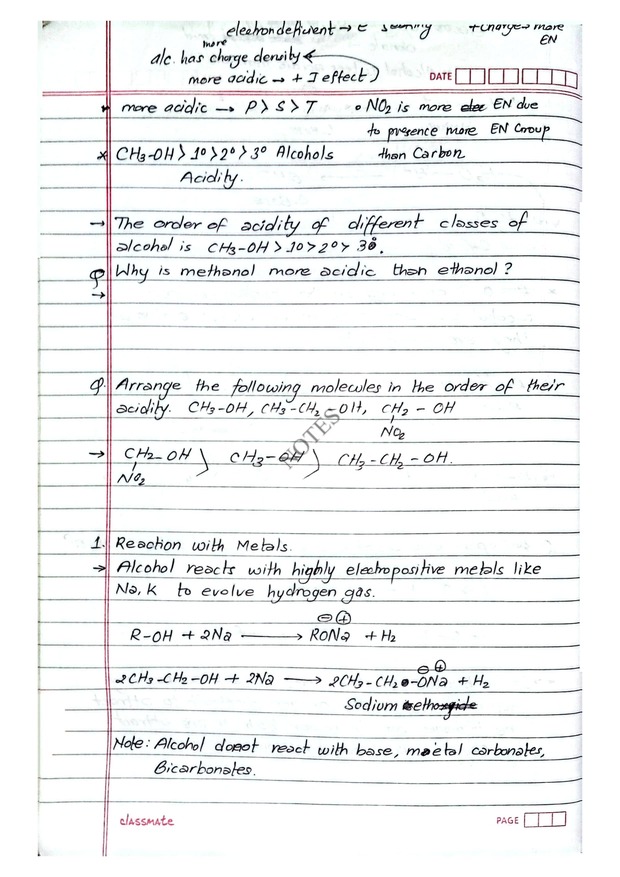 electron deficient → E +charge→ more
EN
more
alc. has charge density ←
more acidic → + I effect)
DATE
* more acidic → P > S > T
• NO2 is more EN due
to presence more EN Group
than Carbon
* CH3-OH > 1° > 2° > 3° Alcohols
Acidity.
→ The order of acidity of different classes of
alcohol is CH3-OH > 1° > 2° > 3°.
Q Why is methanol more acidic than ethanol?
→
Q. Arrange the following molecules in the order of their
acidity. CH3-OH, CH3-CH2-OH, CH2-OH
NO2
NOTES
→ CH2-OH > CH3-OH > CH3-CH2-OH.
NO2
1. Reaction with Metals.
→ Alcohol reacts with highly electropositive metals like
Na, K to evolve hydrogen gas.
⊖ ⊕
R-OH + 2Na ⟶ RONa + H2
⊖ ⊕
2CH3-CH2-OH + 2Na ⟶ 2CH3-CH2-ONa + H2
Sodium ethoxide
Note: Alcohol donot react with base, metal carbonates,
Bicarbonates.
classmate
PAGE